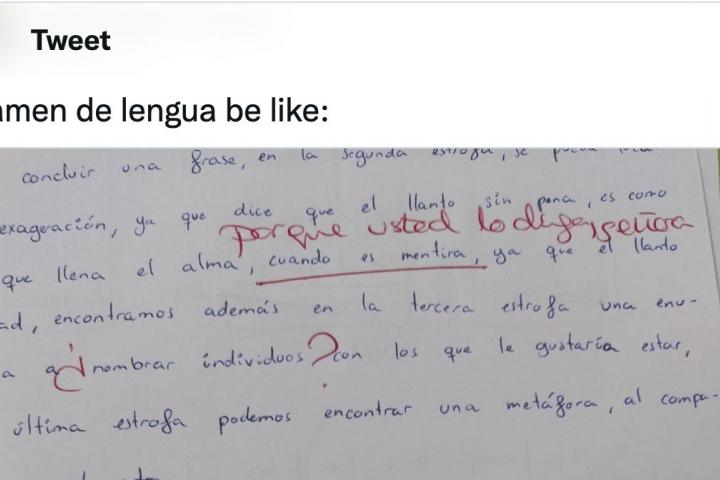 Tweet
amen de lengua be like:
concluir una frase, en la segunda estrofa, se
exageración, ya que dice que el llanto sin pena, es como
porque usted lo diga, señora
que llena el alma, cuando es mentira, ya que el llanto
ad, encontramos además en la tercera estrofa una enu-
a a ¿nombrar individuos? con los que le gustaría estar,
última estrofa podemos encontrar una metáfora, al compa-